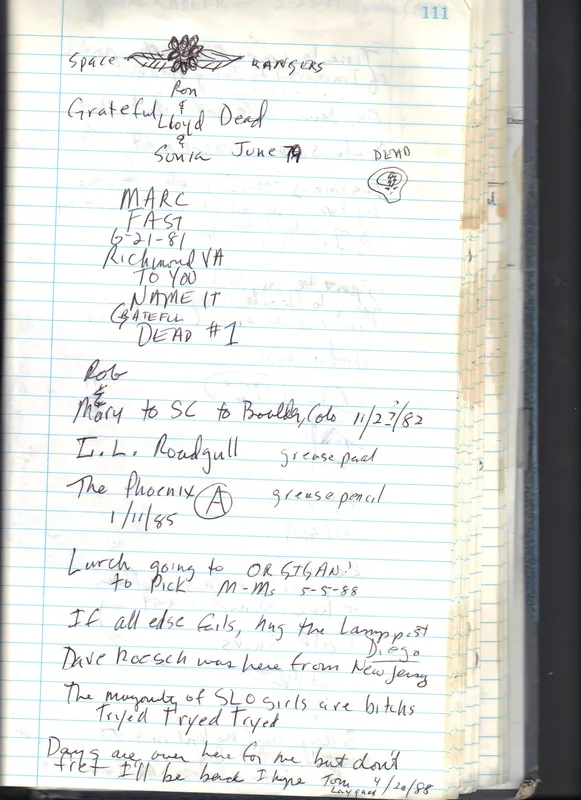 111
Space RANGERS
Ron
&
Grateful Lloyd Dead
&
Sonia June 79
DEAD
MARC
FAST
6-21-81
Richmond VA
TO YOU
NAME IT
GRATEFUL
DEAD #1
Rob
&
Mary to SC to Boulder, Colo 11/23/82
I. L. Roadgull grease pencil
The Phoenix A grease pencil
1/11/85
Lurch going to ORGIGAN!
to Pick M-Ms 5-5-88
If all else fails, hug the Lamppost
Diego
Dave Roesch was here from New Jersey
The mayority of SLO girls are bitchs
Tryed Tryed Tryed
Days are over here for me but don't
fret I'll be back I hope Tom 4/20/88